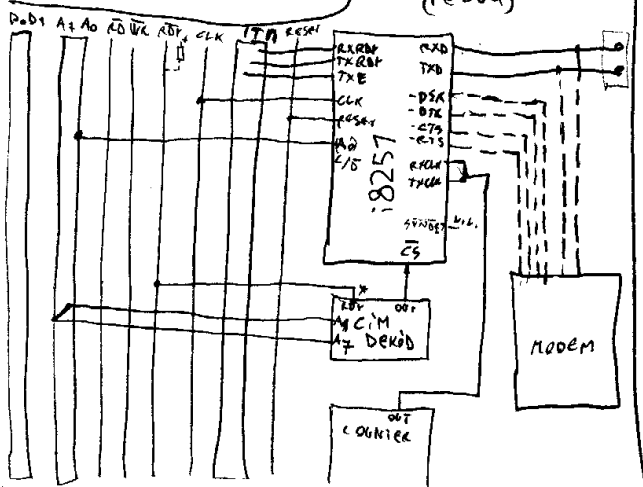 D0D7 A7 A0 RD WR RDY CLK ITN RESET
RXRDY
TXRDY
TXE
CLK
RESET
A0
C/D
i8257
RXD
TXD
-DSR
-DTR
-CTS
-RTS
RXCLK
TXCLK
SYNDET N.C.
CS
*
RDY OUT
A1
A7
CIM
DEKOD
MODEM
OUT
COUNTER